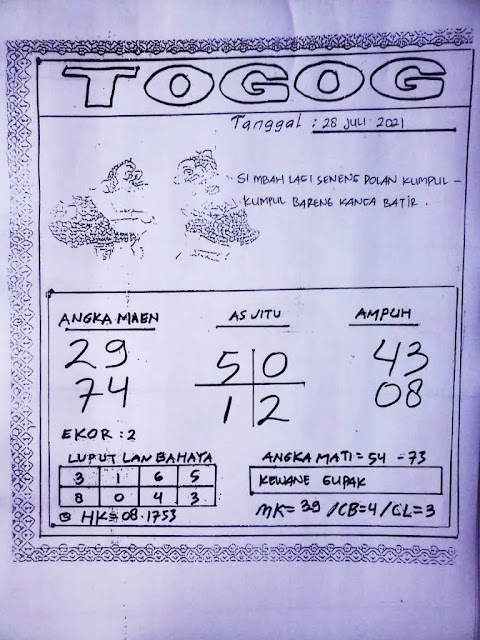 TOGOG
Tanggal : 28 JULI 2021
SI MBAH LAGI SENENG DOLAN KUMPUL -
KUMPUL BARENG KANCA BATIR .
ANGKA MAEN
29
74
EKOR : 2
AS JITU
5 0
1 2
AMPUH
43
08
LUPUT LAN BAHAYA
3 1 6 5
8 0 4 3
HK = 08.1753
ANGKA MATI = 54 - 73
KEWANE GUPAK
MK = 39 / CB = 4 / CL = 3